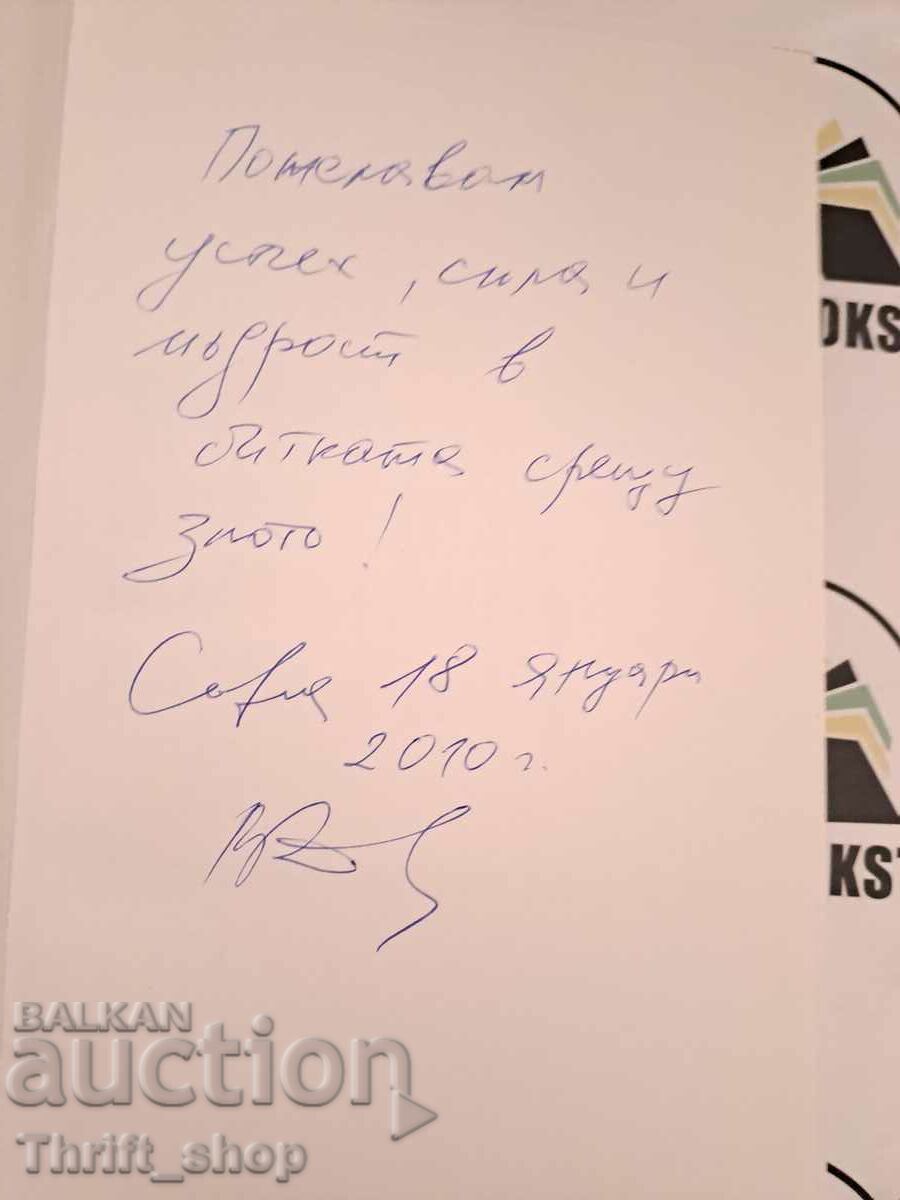 Пожелавам
успех, сила и
мъдрост в
битката срещу
злото!
София 18 януари
2010 г.
OKS
KS
BALKAN
auction
Thrift_shop